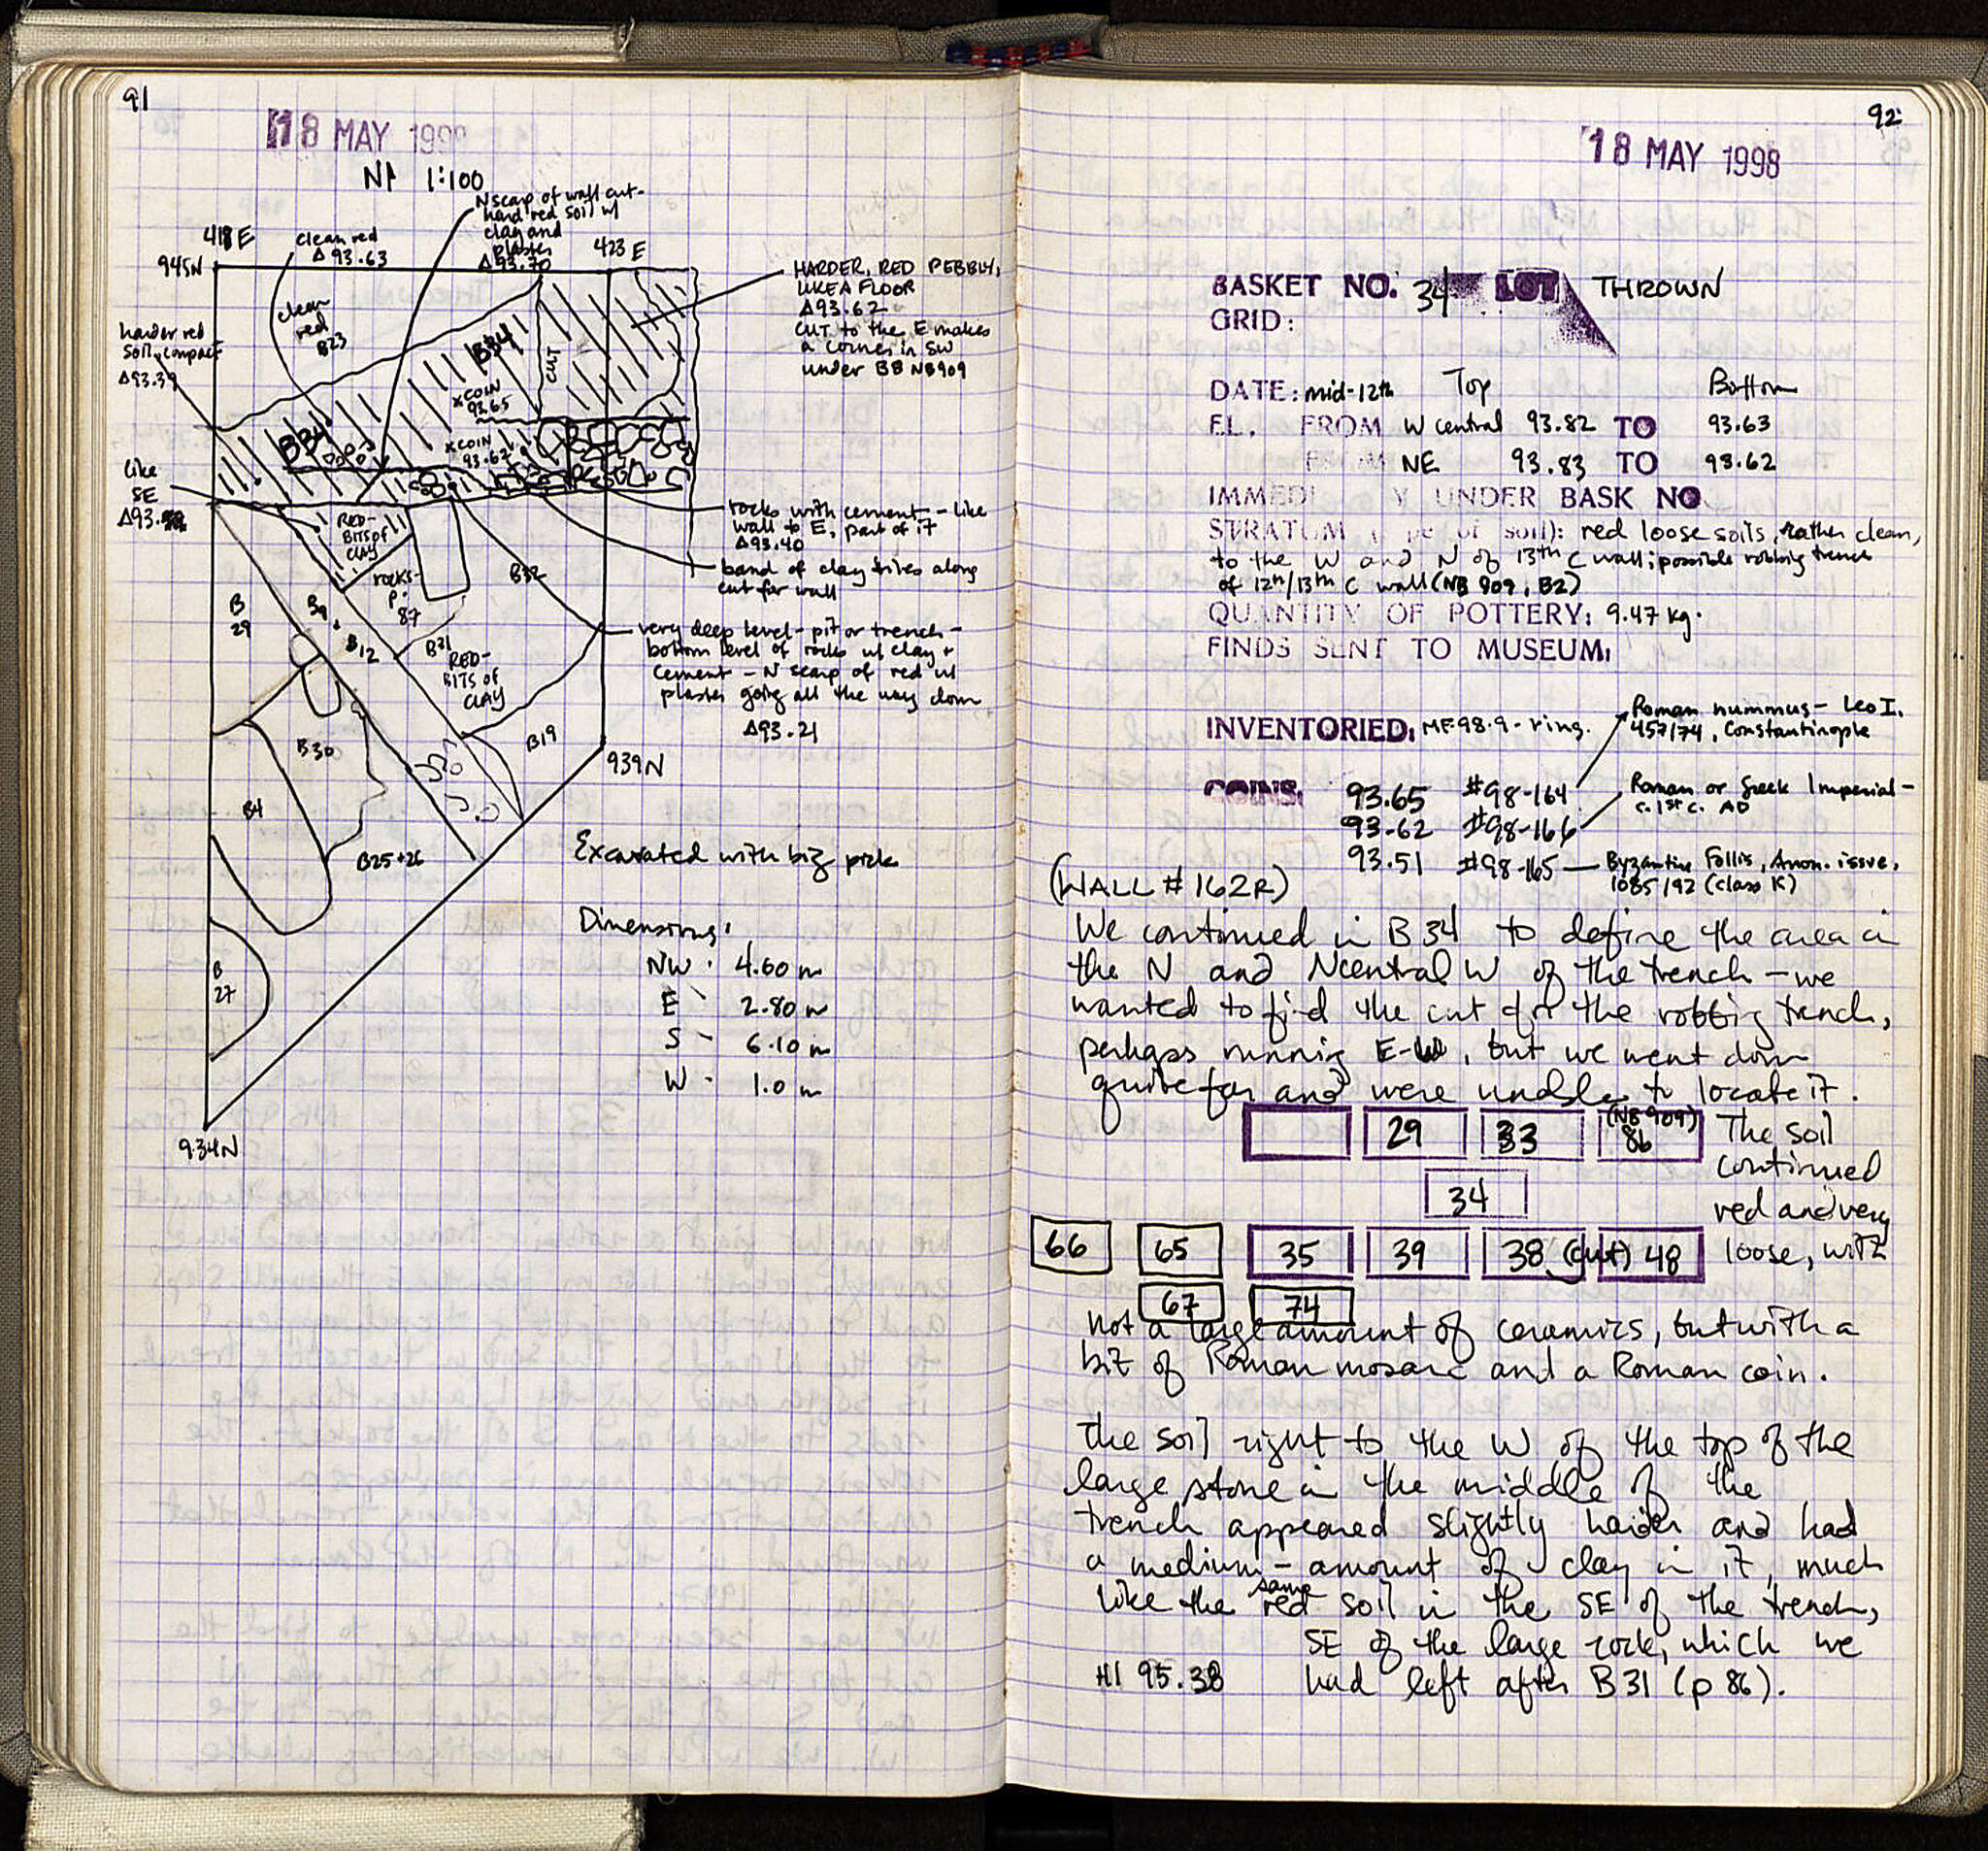 91
18 MAY 1998
N 1:100
N scarp of wall cut-
hard red soil w/
clay and
plaster
Δ93.70
418 E
clean red
Δ 93.63
423 E
945N
clean
red
B23
HARDER, RED PEBBLY,
LIKE A FLOOR
Δ93.62
CUT to the E makes
a corner in SW
under B8 NB909
harder red
soil, compact
Δ93.39
B34
CUT
x COIN
93.65
B34
x COIN
93.62
like
SE
Δ93.
rocks with cement - like
wall to E, part of it
Δ93.40
RED-
BITS OF
CLAY
band of clay along
cut for wall
rocks-
p.
87
B32
B
29
B9
B12
very deep level - pit or trench -
bottom level of rocks w/ clay +
cement - N scarp of red w/
plaster going all the way down
Δ93.21
B31
RED-
BITS OF
CLAY
B19
939N
B30
B4
B25+26
Excavated with big pick
Dimensions:
NW - 4.60 m
E - 2.80 m
S - 6.10 m
W - 1.0 m
B
27
934N
92
18 MAY 1998
BASKET NO. 34 LOT THROWN
GRID:
DATE: mid-12th Top Bottom
EL. FROM W central 93.82 TO 93.63
FROM NE 93.83 TO 93.62
IMMEDI Y UNDER BASK NO.
STRATUM ( pe of soil): red loose soils, rather clean,
to the W and N of 13th C wall; possible robbing trench
of 12th/13th C wall (NB 909, B2)
QUANTITY OF POTTERY: 9.47 kg.
FINDS SENT TO MUSEUM:
INVENTORIED: MF-98-9 - ring.
Roman nummus - Leo I,
457/74, Constantinople
COINS: 93.65 #98-164
Roman or Greek Imperial -
c. 1st c. AD
93.62 #98-166
93.51 #98-165 — Byzantine Follis, Anon. issue,
1085/92 (class K)
(WALL # 162R)
We continued in B34 to define the area in
the N and Ncentral W of the trench - we
wanted to find the cut for the robbing trench,
perhaps running E-W, but we went down
quite far and were unable to locate it.
29 33 (NB 909) 86
The soil
continued
34
red and very
66 65 35 39 38 (cut) 48
loose, with
67 74
not a large amount of ceramics, but with a
bit of Roman mosaic and a Roman coin.
The soil right to the W of the top of the
large stone in the middle of the
trench appeared slightly harder and had
a medium - amount of clay in it, much
like the same red soil in the SE of the trench,
SE of the large rock, which we
HI 95.38 had left after B31 (p 86).